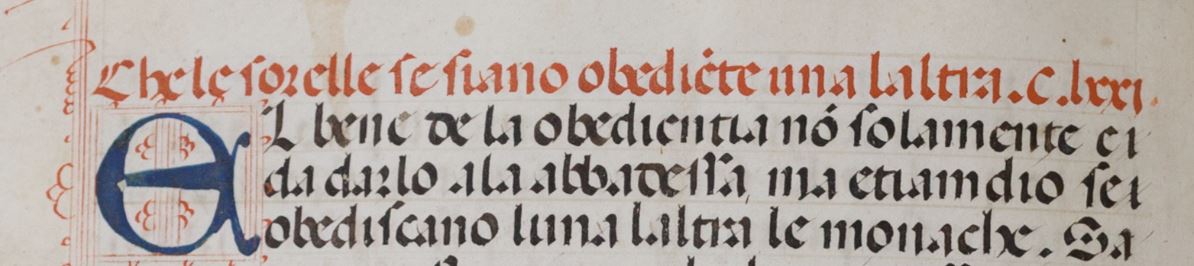 Che le sorelle se siano obediēte una laltra. C. lxxi.
EL bene de la obedientia nō solamente ei
da darlo ala abbadessa, ma etiamdio sei
obediscano luna laltra le monache. Sa